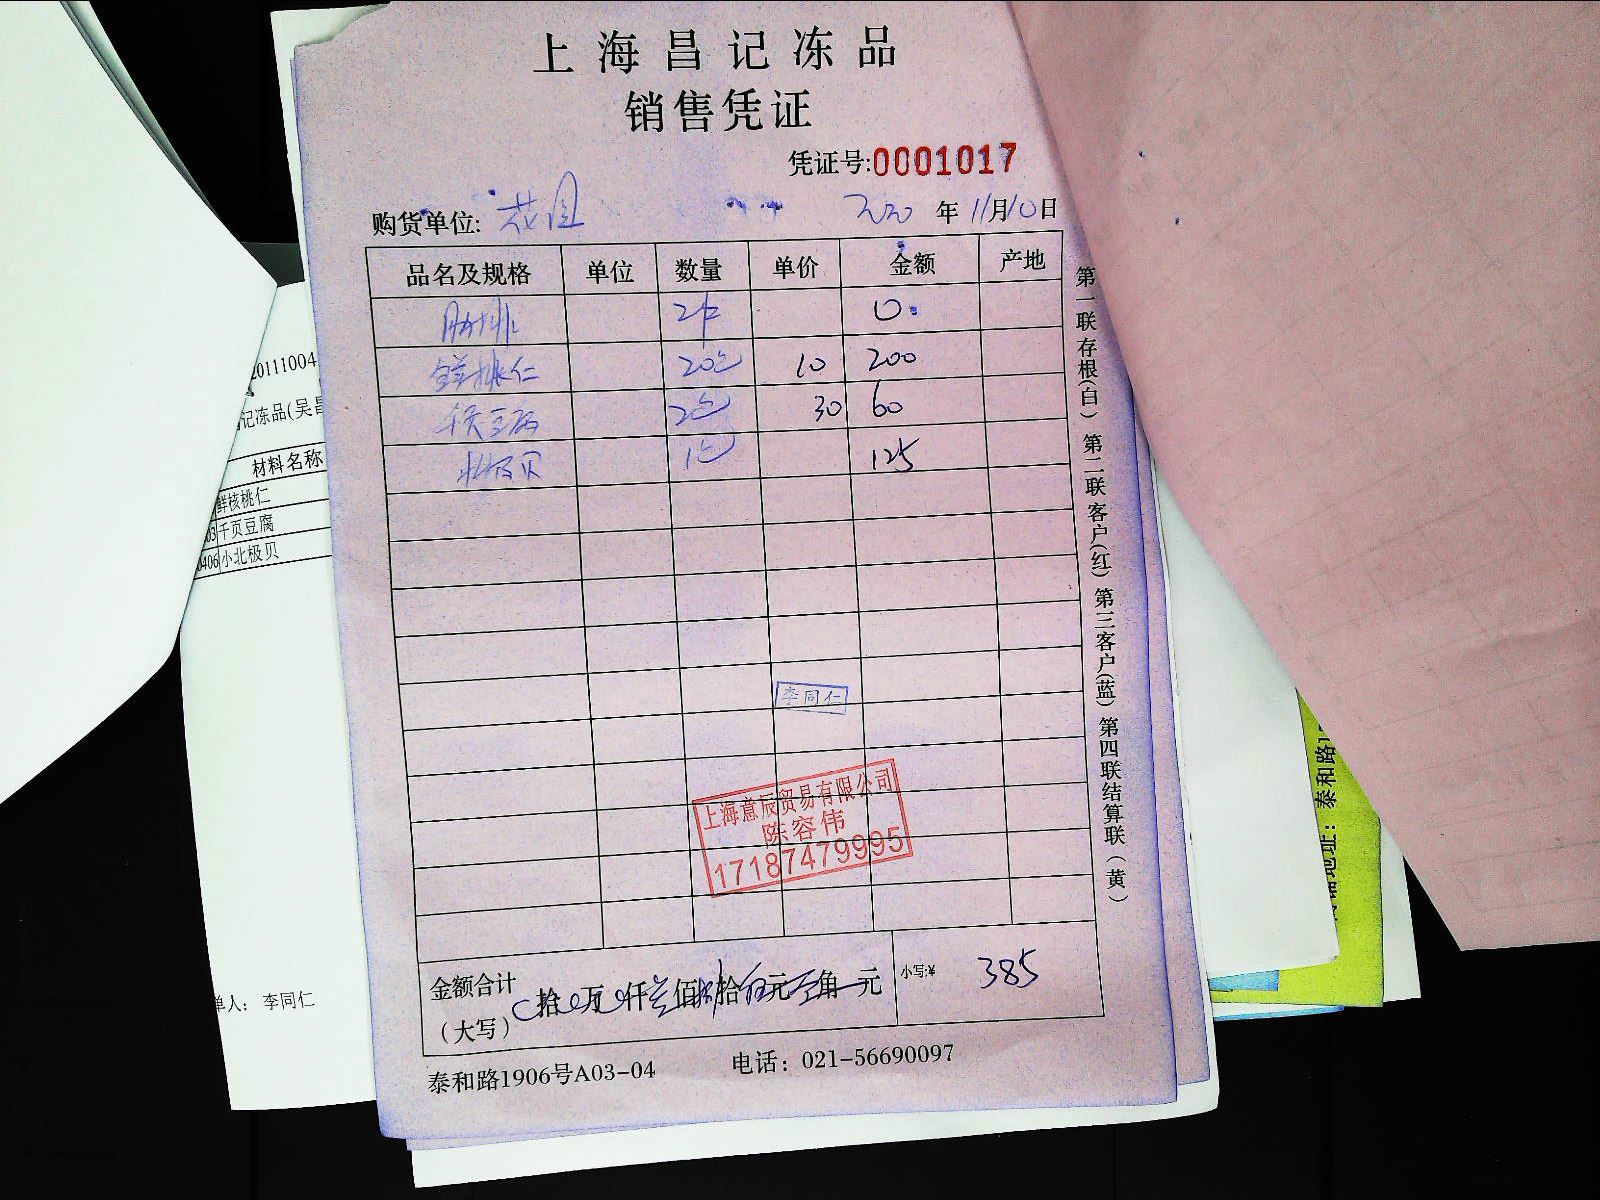 上海昌记冻品
销售凭证
凭证号:0001017
购货单位: 花园 2020 年 11月10日
品名及规格 单位 数量 单价 金额 产地
0
鲜桃仁 20包 10 200
千页豆腐 2包 30 60
北极贝 1包 125
李同仁
上海意辰贸易有限公司
陈容伟
17187479995
金额合计
(大写) 拾 万 仟 叁 佰 捌 拾 伍 元 角 元 小写:¥ 385
泰和路1906号A03-04 电话: 021-56690097
第一联存根(白) 第二联客户(红) 第三客户(蓝) 第四联结算联(黄)
20111004
记冻品(吴昌
材料名称
鲜核桃仁
03 千页豆腐
0406 小北极贝
单人: 李同仁
地址: 泰和路1